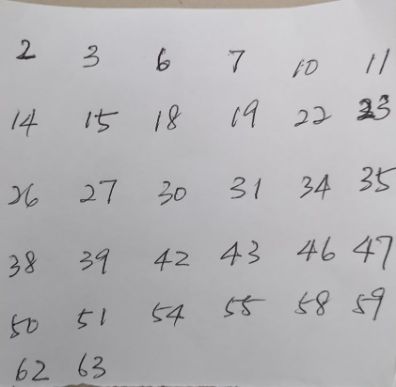 2 3 6 7 10 11
14 15 18 19 22 23
26 27 30 31 34 35
38 39 42 43 46 47
50 51 54 55 58 59
62 63